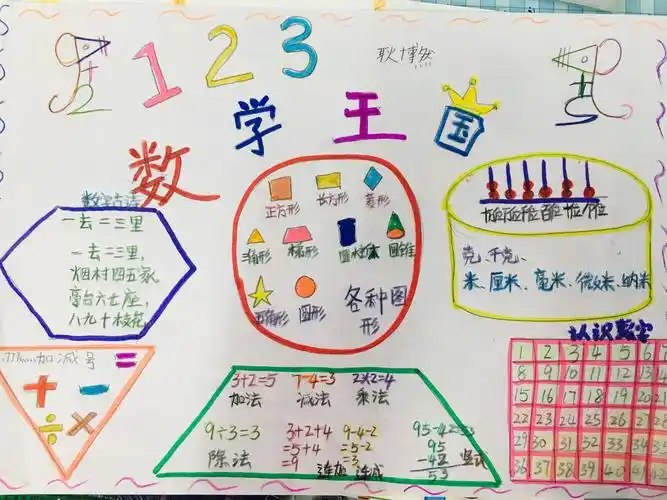 123
耿博然
数学王国
数字古诗
一去二三里
一去二三里,
烟村四五家,
亭台六七座,
八九十枝花。
正方形
长方形
菱形
三角形
梯形
圆柱体
圆锥
五角形
圆形
各种图
形
个位
克、千克、
米、厘米、毫米、微米、纳米
加减号
=
+ -
÷ ×
3+2=5
加法
7-4=3
减法
2×2=4
乘法
9÷3=3
除法
3+2+4
=5+4
=9
连加
9-4-2
=5-2
=3
连减
95-42=53
95
-42
53
竖式
认识数字
1 2 3 4 5 6 7
8 9 10 11 12 13 14
15 16 17 18 19 20 21
22 23 24 25 26 27
29 30 31 32 33 34
36 37 38 39 40 41